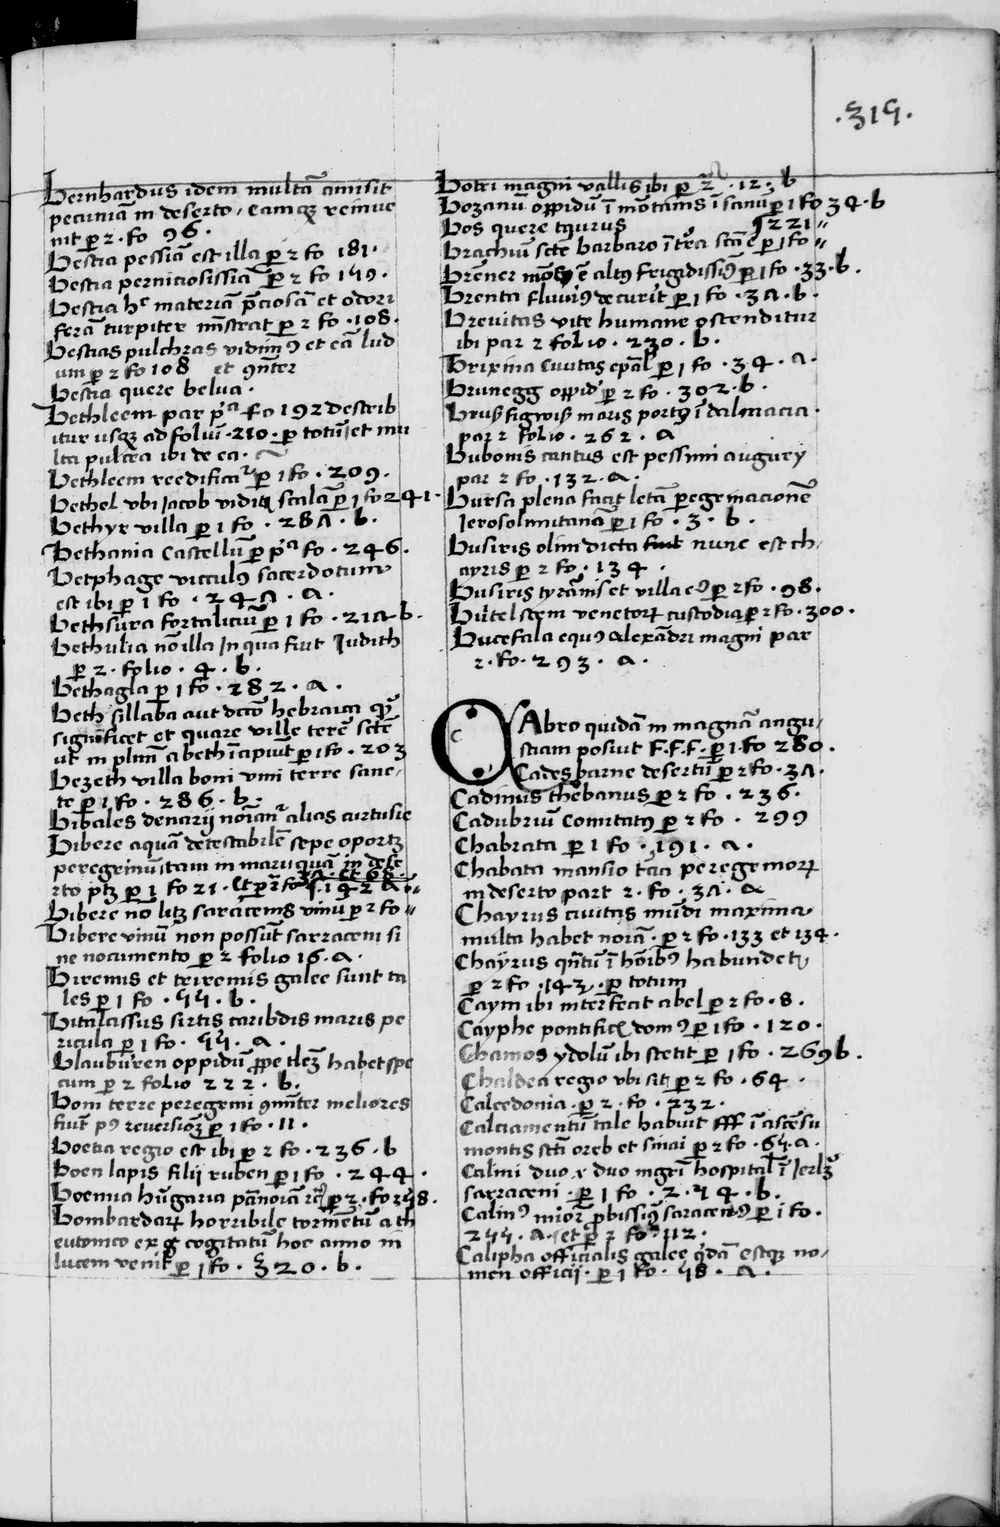 .315.
Bernhardus idem multā amisit
pecuniā in deserto, eamqꝫ reinue
nit ꝑ 2. fo 96.
Bestia pessiā est illa ꝑ 2 fo 181.
Bestia perniciosissiā ꝑ 2 fo 159.
Bestia hꝰ materiam p̄ciosā et odori
ferā turpiter mīstrat ꝑ 2 fo .108.
Bestias pulchras vidimꝰ et eā lud
um ꝑ 2 fo 108 et ꝯn̄ter
Bestia quere belua.
Bethleem par pᵃ fo 192 describ
itur usqꝫ ad foluī .210. ꝑ totum et mu
lta pulcra ibi de ea.
Bethleem reedificatʳ ꝑ 1 fo .209.
Bethel vbi Jacob vidit scalā ꝑ 1 fo 241.
Bethyr villa ꝑ 1 fo .287. b.
Bethania Castellū ꝑ pᵃ fo .246.
Betphage vicculꝰ sacerdotum
est ibi ꝑ 1 fo .247. a.
Bethsura fortaliciū ꝑ 1 fo .217. b.
Bethulia nō illa In qua fuit Judith
ꝑ 2. folio .4. b.
Bethagla ꝑ 1 fo .282. a.
Beth sillaba aut dictō hebraica qͥ
significet et quare ville terre sctē
ut in plīm a beth īcipiūt ꝑ 1 fo .203
Bezeth villa boni vini terre sanc,
te ꝑ 1 fo .286. b.
Bibales denarij noīanʳ alias curtusie
Bibere aquā detestabilē sepe oportꝫ
peregrinū tam in mari quā in dese
37. et 68.
rto ptꝫ ꝑ 1 fo 21. Et ꝑ 2 fo .142 a.
Bibere nō litꝫ saracenis vinū ꝑ 2 fo
Bibere vinū non possūt sarraceni si
ne nocumento ꝑ 2 folio 16. a.
Biremis et triremis galee sunt ta
les ꝑ 1 fo .55. b.
Bitalassus sirtis caribdis maris pe
ricula ꝑ 1 fo .55. a.
Blaubüren oppidū ꝓpe habet spe
cum ꝑ 2 folio 222. b.
Boni terre peregrini ꝯmūter meliores
fiūt pꝰ reuersionꝫ ꝑ 1 fo .11.
Boetia regio est ibi ꝑ 2 fo .236. b
Boen lapis filij ruben ꝑ 1 fo .244.
Boemia hūgaria pānoīa ꝑ 2. fo 258.
Bombardarꝝ horribile tormētū a th
eutonico ex cogitatū hoc anno in
lucem venit ꝑ 1 fo .320. b.
Botri magni vallis ibi ꝑ 2 .12. b
Bozanū oppidū ī mōtanis ī ꝑ 1 fo 34. b
Bos quere taurus
Brachiū scte barbare ꝑ 1 fo 221
Brēner mōs ē altꝰ frigidissimꝰ ꝑ 1 fo .33. b.
Brenta fluuiꝰ decurit ꝑ 1 fo .37. b.
Breuitas vite humane ostenditur
ibi par 2 folio .230. b.
Brixina Ciuitas epāl ꝑ 1 fo .34. a.
Brunegg oppid ꝑ 2 fo .302. b.
maris portꝰ ī dalmacia.
par 2 folio .262. a
Bubonis cantus est pessimi augurij
par 2 fo .132. a.
Bursa plena facit letā peregrinacionē
Jerosolimitanā ꝑ 1 fo .3. b.
Busiris olim dicta fuit nunc est ch,
ayris ꝑ 2 fo .134.
Busiris tyrānis et villa eꝰ ꝑ 2 fo .98.
Bütelstein venetorꝝ custodia ꝑ 2 fo .300.
Bucefala equꝰ alexādri magni par
2. fo .293. a.
CAbro quidā in magnā angu,
stiam posuit F.F.F. ꝑ 1. fo 280.
Cades barne desertū ꝑ 2 fo .37.
Cadimus thebanus ꝑ 2 fo .236.
Cadubriū Comitatꝰ ꝑ 2 fo .299
Chabrata ꝑ 1 fo .191. a.
Chabata mansio tāa peregrinorꝝ
in deserto part 2. fo .37. a
Chayrus ciuitas mūdi maxima
multa habet noīa. ꝑ 2 fo .133 et 134.
Chaÿrus qn̄tū ī hōibꝰ habundet,
ꝑ 2 fo .143. ꝑ totum
Caym ibi interfecit abel ꝑ 2 fo .8.
Cayphe pontificꝭ domꝰ ꝑ 1 fo .120.
Chamos ydolū ibi stetit ꝑ 1 fo .269 b.
Chaldea regio vbi sit ꝑ 2 fo .64.
Calcedonia. ꝑ 2. fo .232.
Calciamentū tale habuit fff ī ascēsu
montis sctī oreb et sinai ꝑ 2 fo .65. a.
Calini duo x duo mgrī hospital ī Jerlꝫ
sarraceni. ꝑ 1 fo .2.54. b.
Calinꝰ miorʳ ꝓbissimꝰ saracenꝰ ꝑ 1 fo.
255. a. et ꝑ 2 fo 112.
Calipha officialis galee qͥdā estqꝫ no,
men officij. ꝑ 1 fo .58. a.